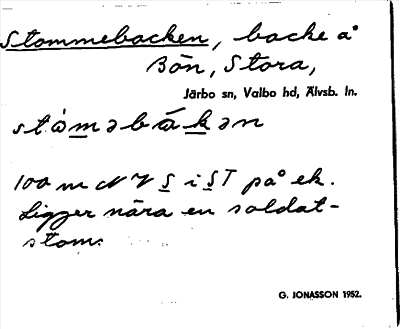 Stommebacken, backe å
Bön, Stora,
Järbo sn, Valbo hd, Älvsb. ln.
stȧmǝbákǝn
100 m N V S i ST på ek.
Ligger nära en soldat-
stom.
G. JONASSON 1952.